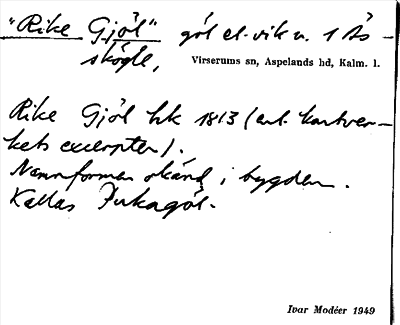 "Rike Gjöl" göl el. vik n. 1 Ås-
skögle,
Virserums sn, Aspelands hd, Kalm. l.
Rike Gjöl hk 1813 (enl. kartver-
kets excerpter).
Namnformen okänd i bygden.
Kallas Pukagöl.
Ivar Modéer 1949